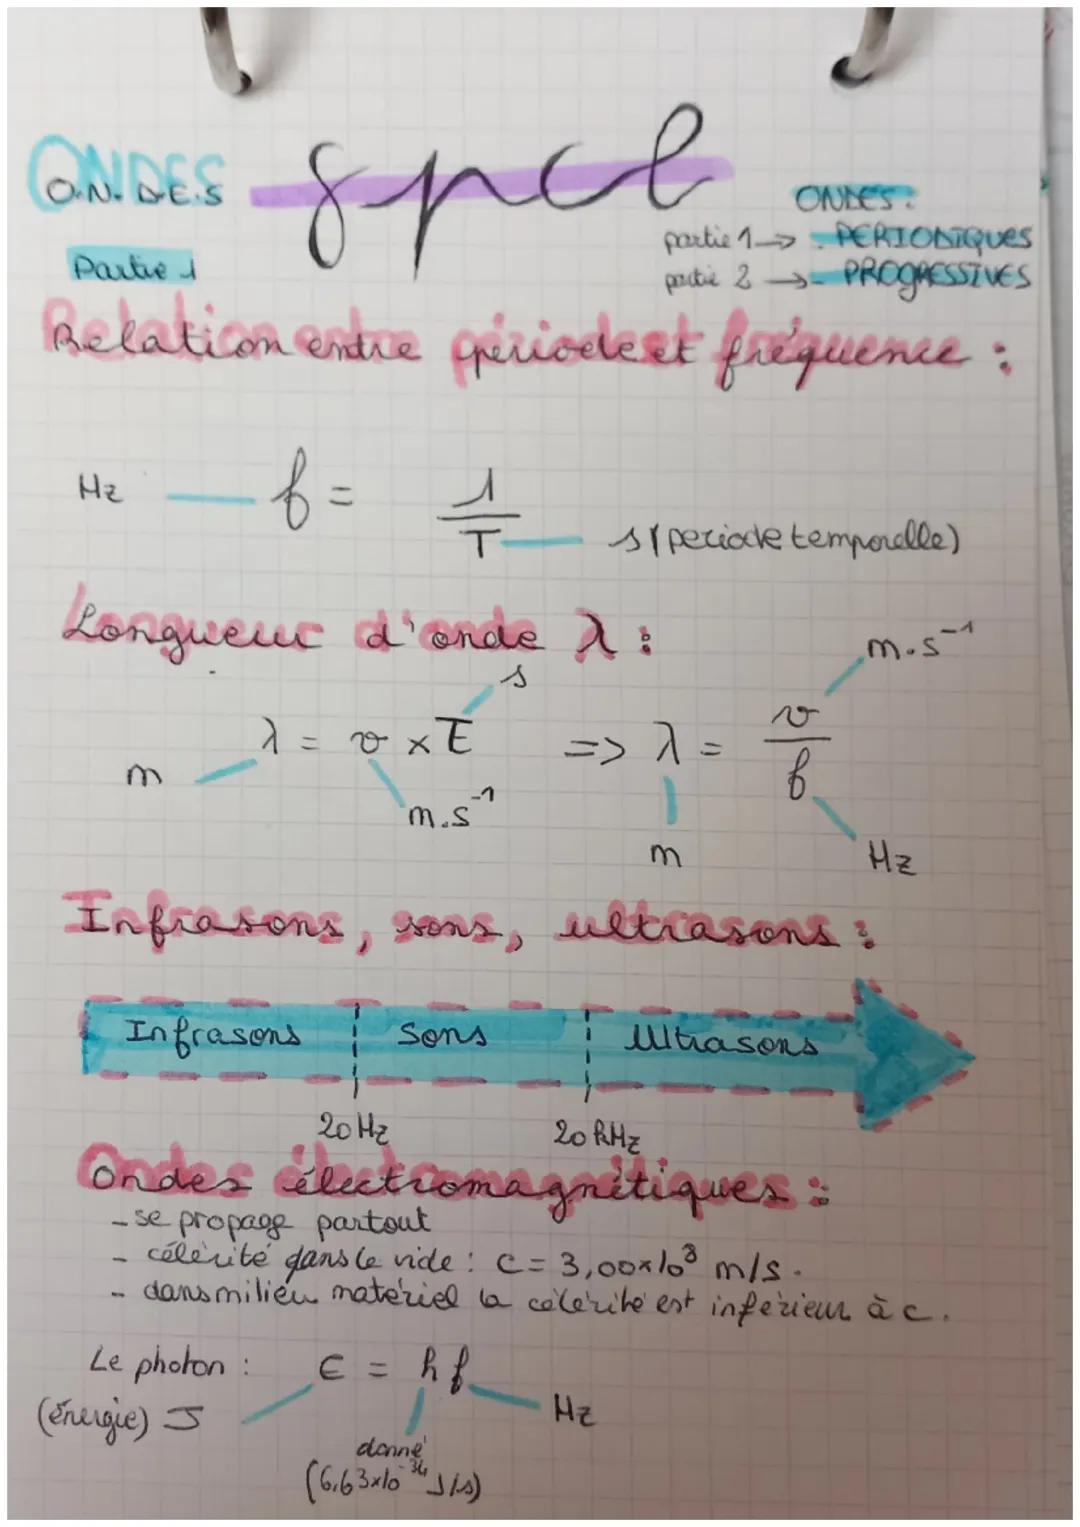 ONDES
O.N.D.E.S
spcl
ONDES :
partie 1 → - PERIODIQUES
partie 2 → - PROGRESSIVES
Partie 1
Relation entre période et fréquence :
Hz — f = 1/T — s (periode temporelle)
Longueur d'onde λ :
s
m.s⁻¹
λ = v × T => λ = v/f
m
m.s⁻¹
m
Hz
Infrasons, sons, ultrasons :
Infrasons Sons Ultrasons
20 Hz 20 kHz
Ondes électromagnétiques :
- se propage partout
- célérité dans le vide : c = 3,00×10⁸ m/s.
- dans milieu matériel la célérité est inférieur à c.
Le photon : E = h f
(énergie) J
Hz
donné
(6,63×10⁻³⁴ J/s)